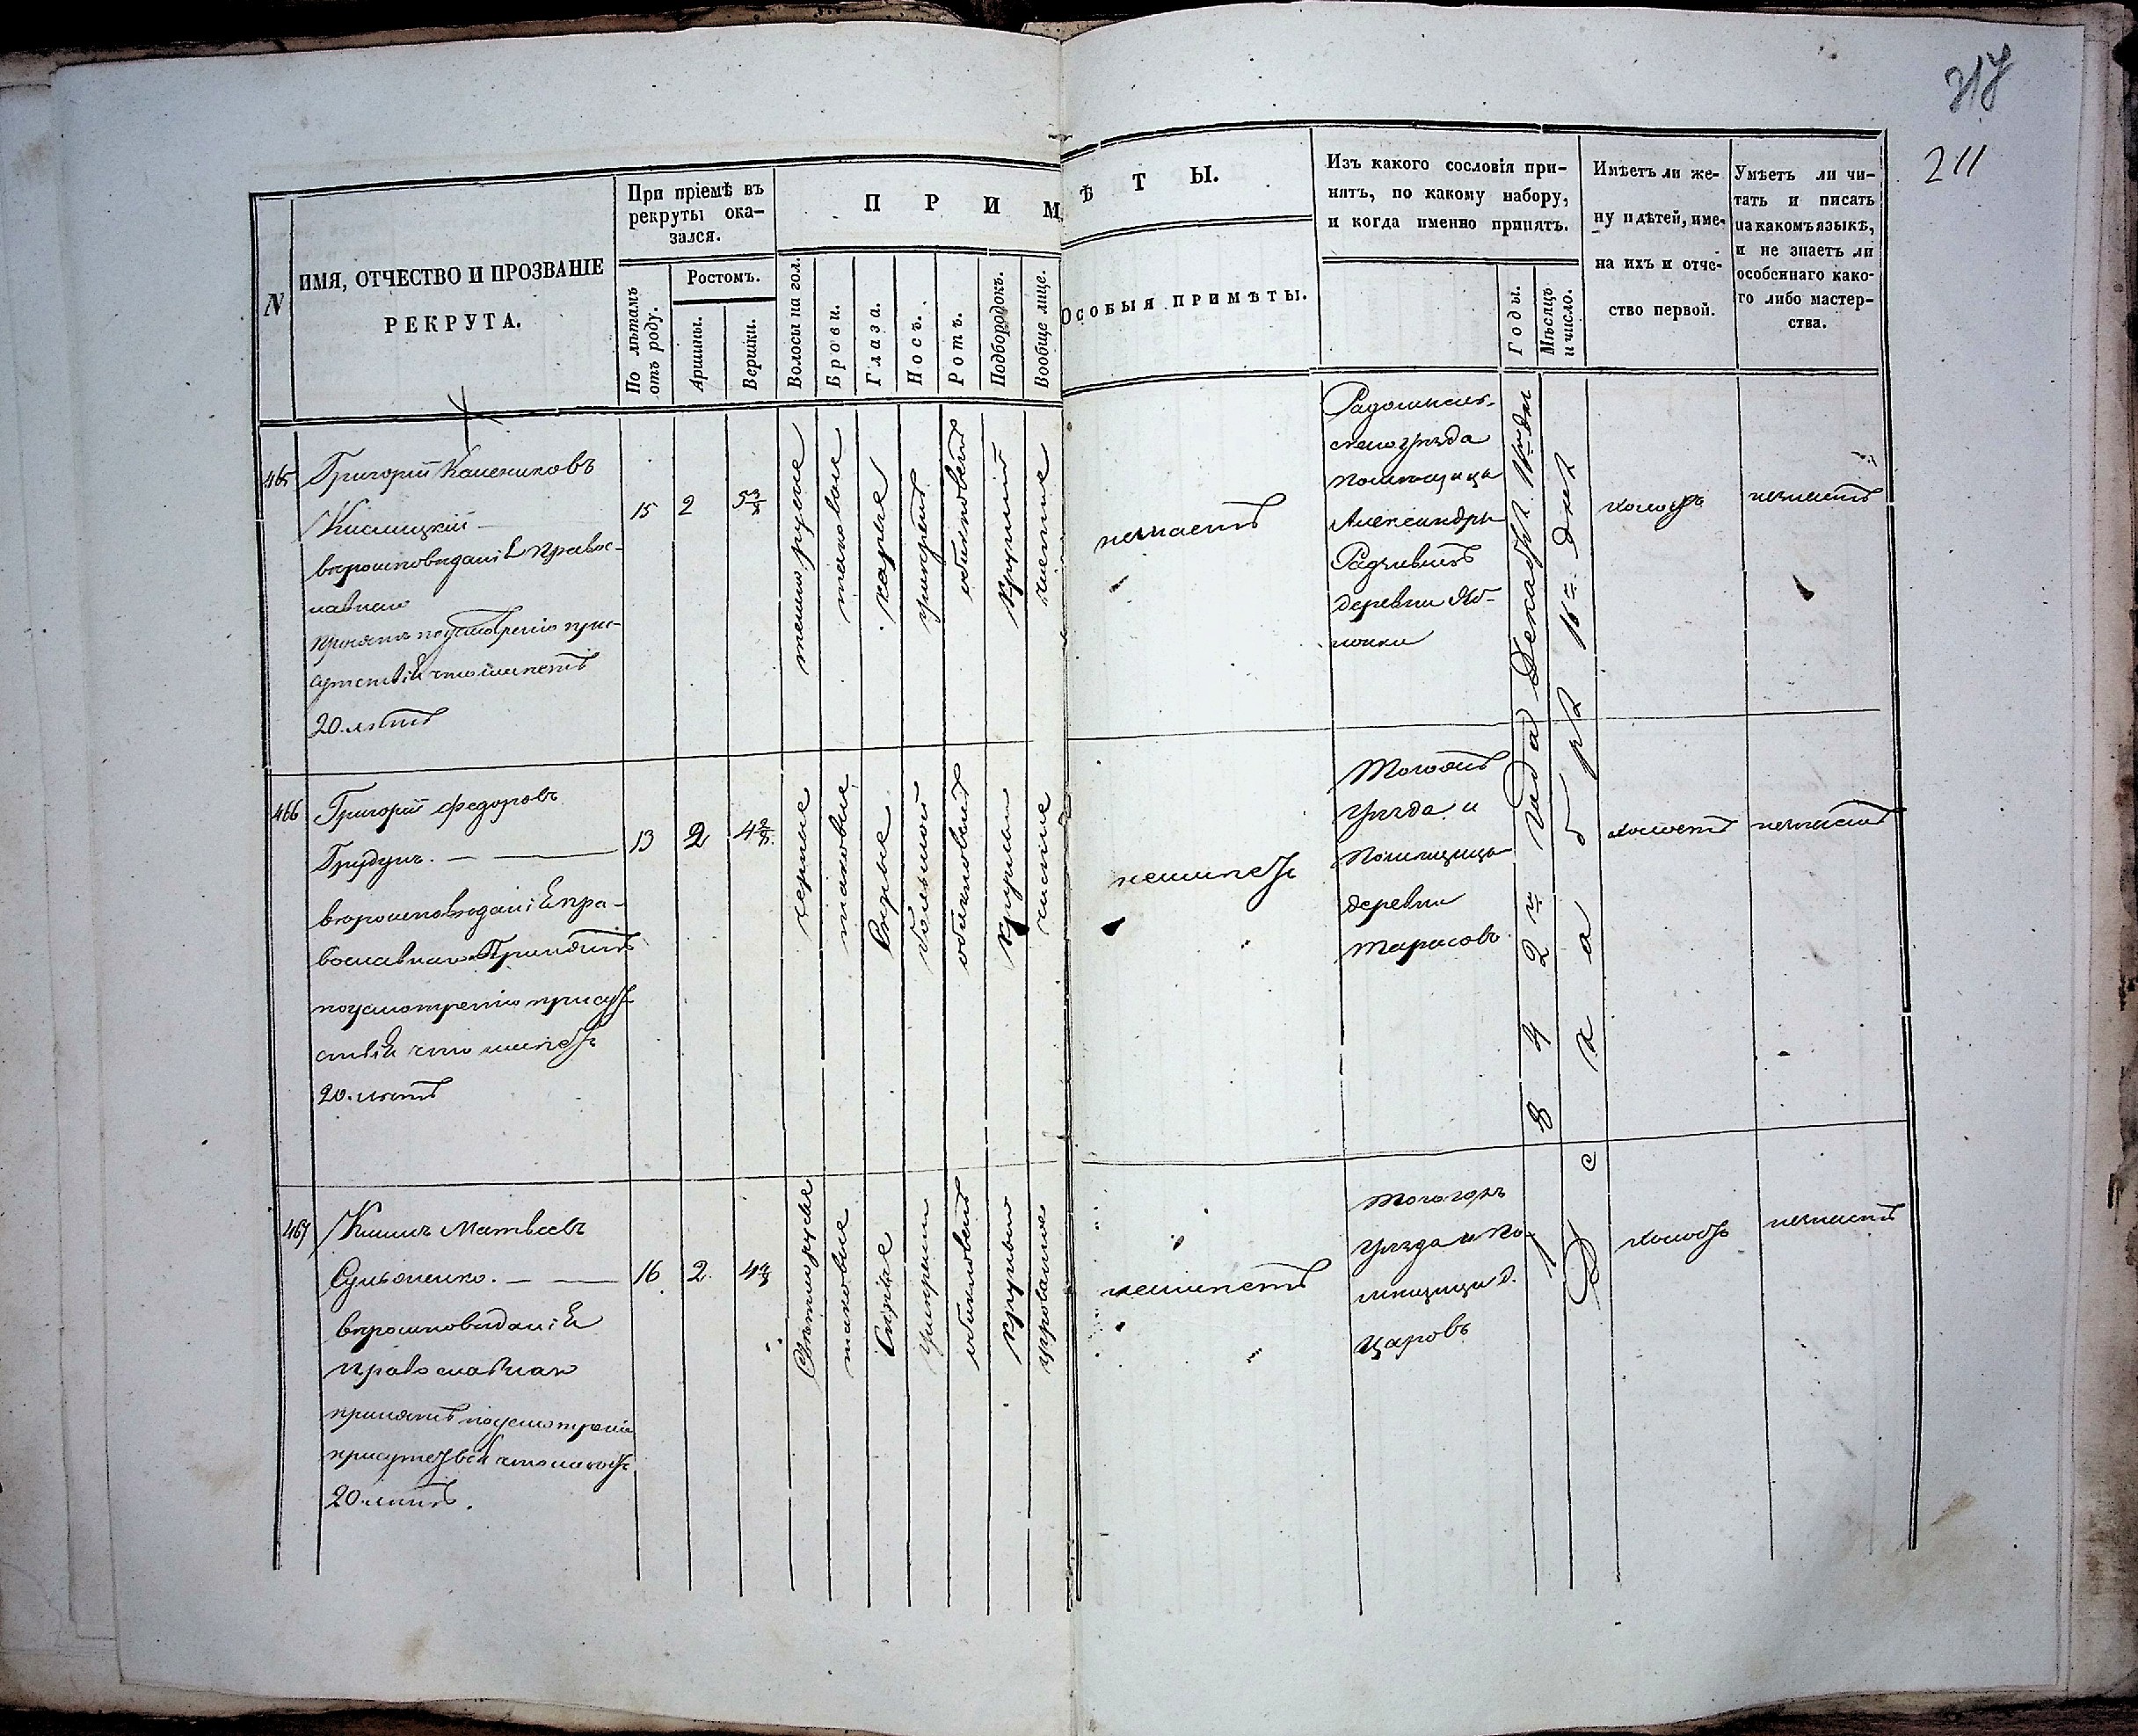 211
N
ИМЯ, ОТЧЕСТВО И ПРОЗВАНІЕ
РЕКРУТА.
При пріемѣ въ
рекруты ока-
зался.
По лѣтамъ
отъ роду.
Ростомъ.
Аршины.
Вершки.
П Р И М
Ѣ Т Ы.
Волосы на гол.
Брови.
Глаза.
Носъ.
Ротъ.
Подбородокъ.
Вообще лице.
ОСОБЫЯ ПРИМѢТЫ.
Изъ какого сословія при-
нятъ, по какому набору,
и когда именно принятъ.
Годы.
Мѣсяцъ
и число.
Имѣетъ ли же-
ну и дѣтей, име-
на ихъ и отче-
ство первой.
Умѣетъ ли чи-
тать и писать
на какомъ языкѣ,
и не знаетъ ли
особеннаго како-
го либо мастер-
ства.
465
Григорій
Кислицкій
вѣроисповѣданія Правос-
лавнаго
принятъ поусмотренію при-
сутствія что имѣетъ
20 лѣтъ
15
2
5 3/8
темнорусые
таковые
карые
умѣрен
обыкновен
круглый
чистое
неимѣетъ
уѣзда
помѣщицы
Александры
деревни
1842 года Декабря
Декабря 16 дня
холостъ
неумѣетъ
466
Григорій Федоровъ
вѣроисповѣданія пра-
вославнаго Принятъ
поусмотренію присут
ствія что имѣетъ
20 лѣтъ
13
2
4 2/8
черные
таковые
Сѣрые
большой
обыкновен
круглый
чистое
неимѣетъ
Тогожъ
уѣзда и
Помѣщицы
деревни
Тарасовъ
холостъ
неумѣетъ
467
Матвѣевъ
вѣроисповѣданія
православнаго
принятъ поусмотренію
присутствія что имѣетъ
20 лѣтъ.
16
2
4 4/8
Свѣтлорусые
таковые
Сѣрые
умѣрен
обыкновен
круглый
неимѣетъ
Тогожъ
уѣзда и по-
мѣщицы д.
Царовъ
холостъ
неумѣетъ